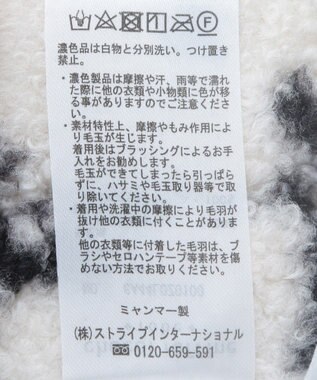 濃色品は白物と分別洗い。つけ置き
禁止。
・濃色製品は摩擦や汗、雨等で濡れ
た際に他の衣類や小物類に色が移
る事がありますのでご注意くださ
い。
・素材特性上、摩擦やもみ作用によ
り毛玉が生じます。
着用後はブラッシングによるお手
入れをお勧めします。
毛玉ができてしまったら引っぱら
ずに、ハサミや毛玉取り器等で取
り除いてください。
・着用や洗濯中の摩擦により毛羽が
抜け他の衣類に付くことがありま
す。
他の衣類等に付着した毛羽は、ブ
ラシやセロハンテープ等素材を傷
めない方法でお取りください。
ミャンマー製
(株)ストライプインターナショナル
0120-659-591